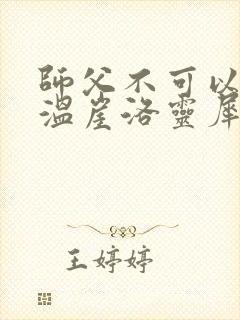 師父不可以
溫崖洛靈犀
王婷婷